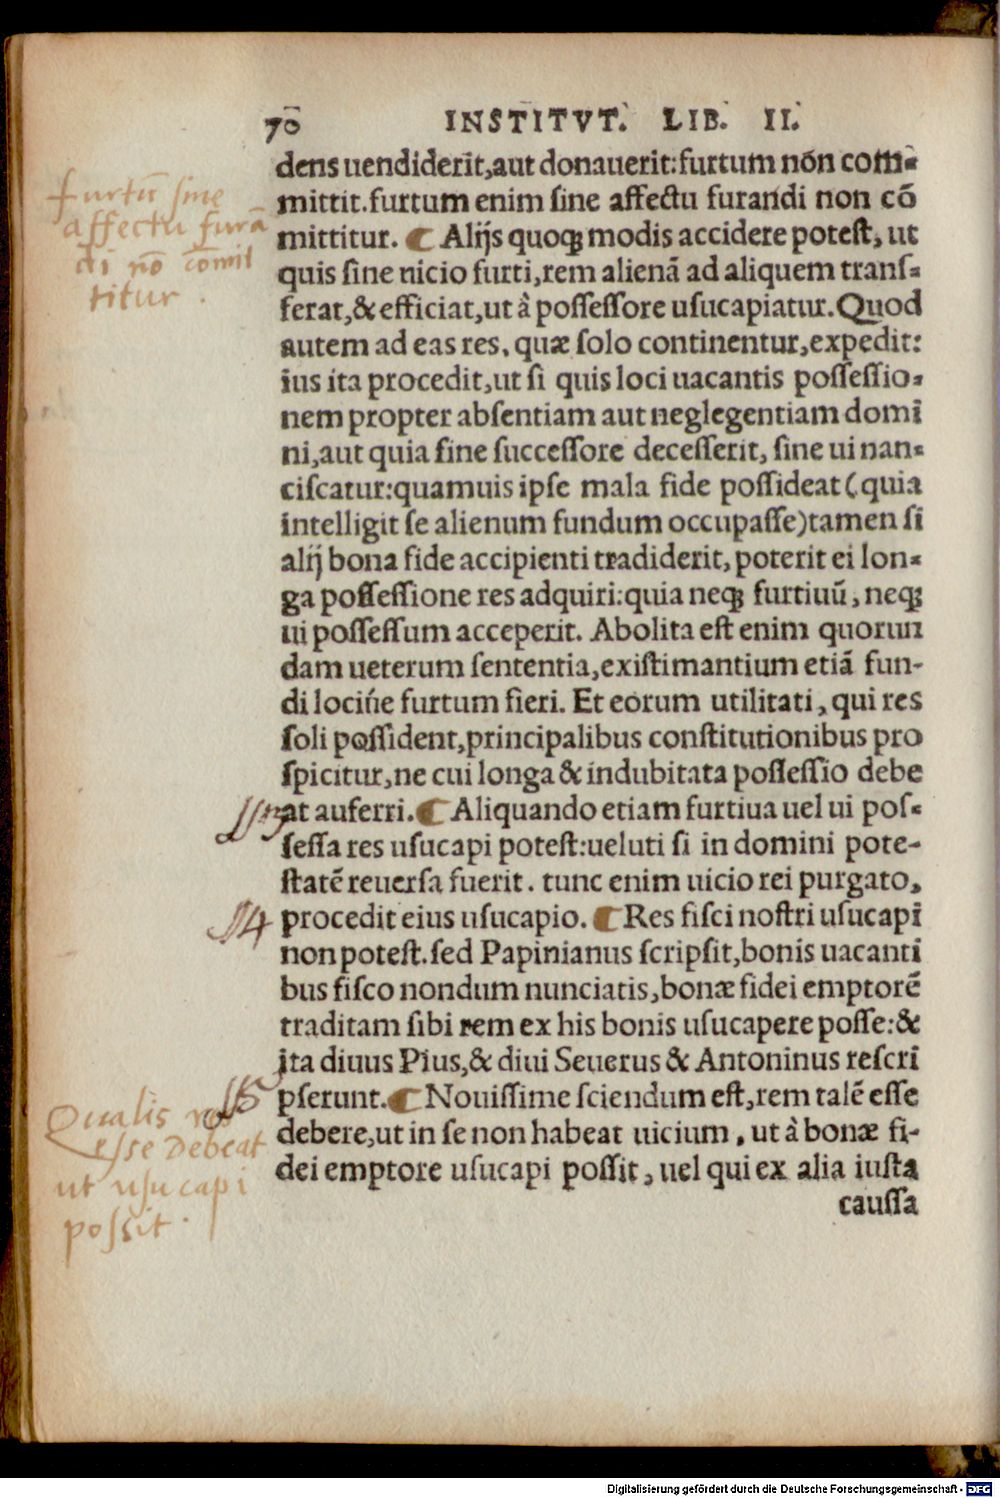 70 INSTITVT. LIB. II.
dens uendiderit,aut donauerit:furtum nõn com-
mittit.furtum enim sine affectu furandi non cõ
mittitur. Alijs quoqꝫ modis accidere potest, ut
quis sine uicio furti,rem alienã ad aliquem transſ-
ferat,& efficiat,ut à possessore usucapiatur.Quod
autem ad eas res, quæ solo continentur,expedit:
ius ita procedit,ut si quis loci uacantis possessio-
nem propter absentiam aut neglegentiam domi
ni,aut quia sine successore decesserit, sine ui nan-
ciscatur:quamuis ipse mala fide possideat (quia
intelligit se alienum fundum occupasse)tamen si
alij bona fide accipienti tradiderit, poterit ei lon-
ga possessione res adquiri:quia neqꝫ furtiuũ, neqꝫ
ui possessum acceperit. Abolita est enim quorun
dam ueterum sententia,existimantium etiã fun-
di lociúe furtum fieri. Et eorum utilitati, qui res
soli possident,principalibus constitutionibus pro
spicitur,ne cui longa & indubitata possessio debe
at auferri. Aliquando etiam furtiua uel ui pos-
sessa res usucapi potest:ueluti si in domini pote-
statẽ reuersa fuerit. tunc enim uicio rei purgato,
procedit eius usucapio. Res fisci nostri usucapi
non potest.sed Papinianus scripsit,bonis uacanti
bus fisco nondum nunciatis,bonæ fidei emptorẽ
traditam sibi rem ex his bonis usucapere posse:&
ita diuus Pius,& diui Seuerus & Antoninus rescri
pserunt. Nouissime sciendum est,rem talẽ esse
debere,ut in se non habeat uicium, ut à bonæ fi-
dei emptore usucapi possit, uel qui ex alia iusta
caussa
furtũ sine
affectu furã
di nõ cõmit
titur.
13
14
15
Qualis res
esse debeat
ut usucapi
possit.
Digitalisierung gefördert durch die Deutsche Forschungsgemeinschaft - DFG